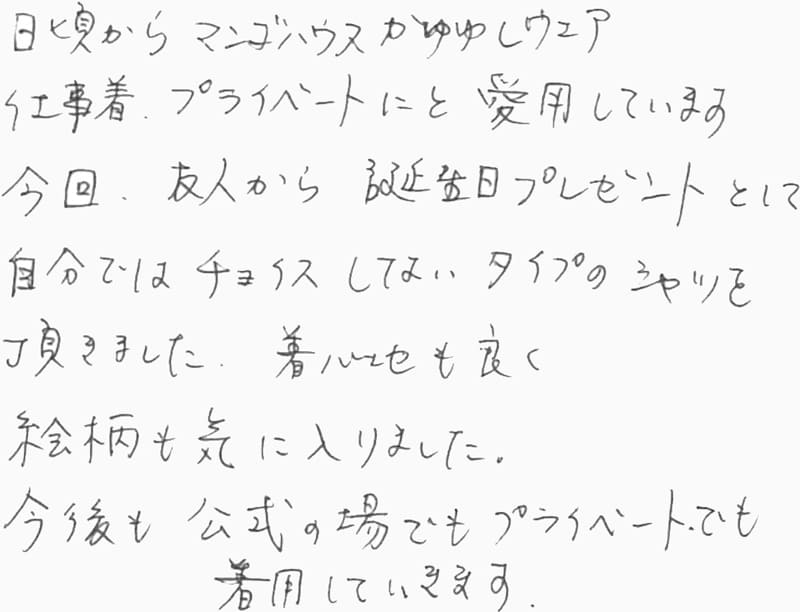 日頃からマンゴハウスかゆゆしウェア
仕事着、プライベートにと愛用しています
今回、友人から誕生日プレゼントとして
自分ではチョイスしてないタイプのシャツを
頂きました。着心地も良く
絵柄も気に入りました。
今後も公式の場でもプライベートでも
着用していきます。